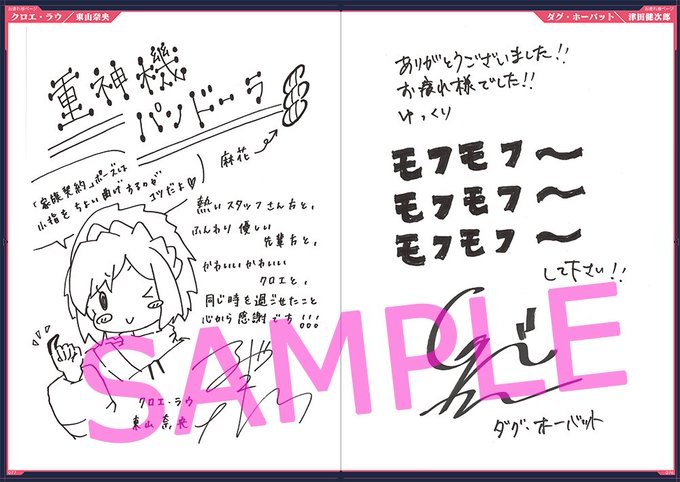 お疲れ様ページ
クロエ・ラウ / 東山奈央
重神機
パンドーラ
麻花
「家族契約」ポーズは
小指をちょい曲げするのが
コツだよ♡
熱いスタッフさん方と、
ふんわり優しい
先輩方と、
かわいいかわいい
クロエと、
同じ時を過ごせたこと
心から感謝です!!!
クロエ・ラウ
東山奈央
お疲れ様ページ
ダグ・ホーバット / 津田健次郎
ありがとうございました!!
お疲れ様でした!!
ゆっくり
モフモフ〜
モフモフ〜
モフモフ〜
して下さい!!
ダグ・ホーバット
SAMPLE